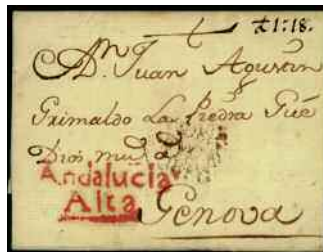 A Dn Juan Agustin
Grimaldo La Piedra Gue
Dios mu.
Andalucia
Alta
Genova